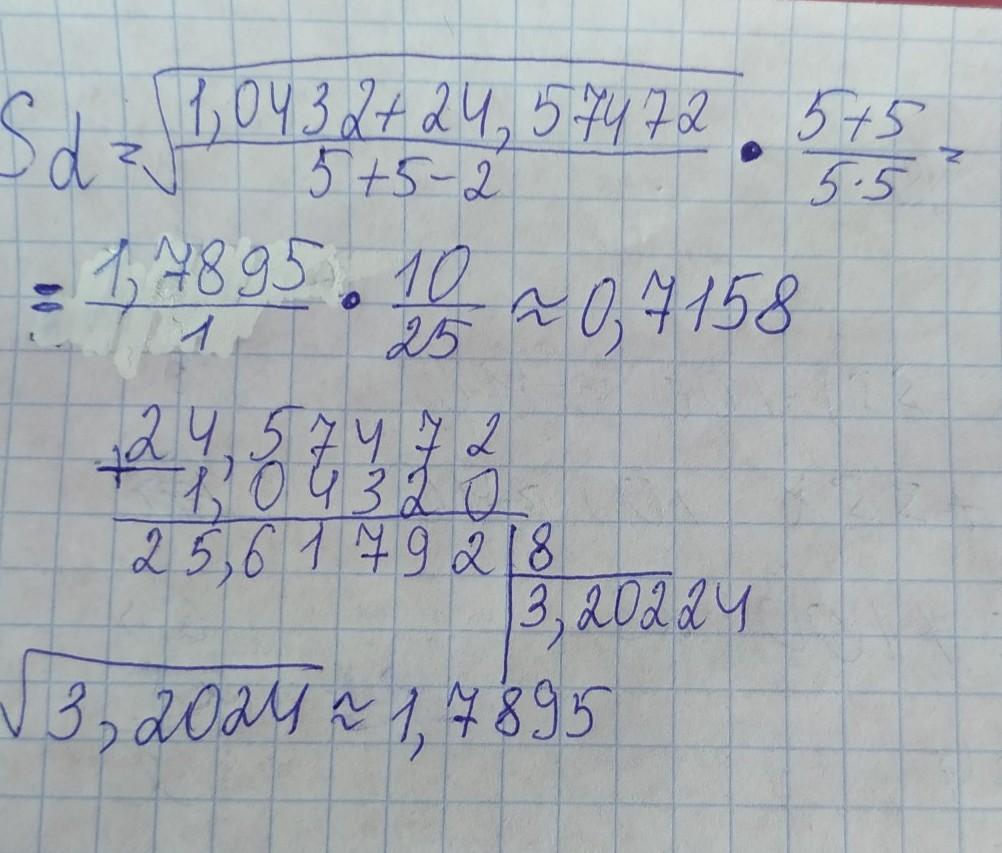 Sd = √(1,0432 + 24,57472)/(5 + 5 - 2) • (5+5)/(5·5) =
= 1,7895/1 • 10/25 ≈ 0,7158
24,57472
+ 1,04320
25,61792 | 8
3,20224
√3,2024 ≈ 1,7895